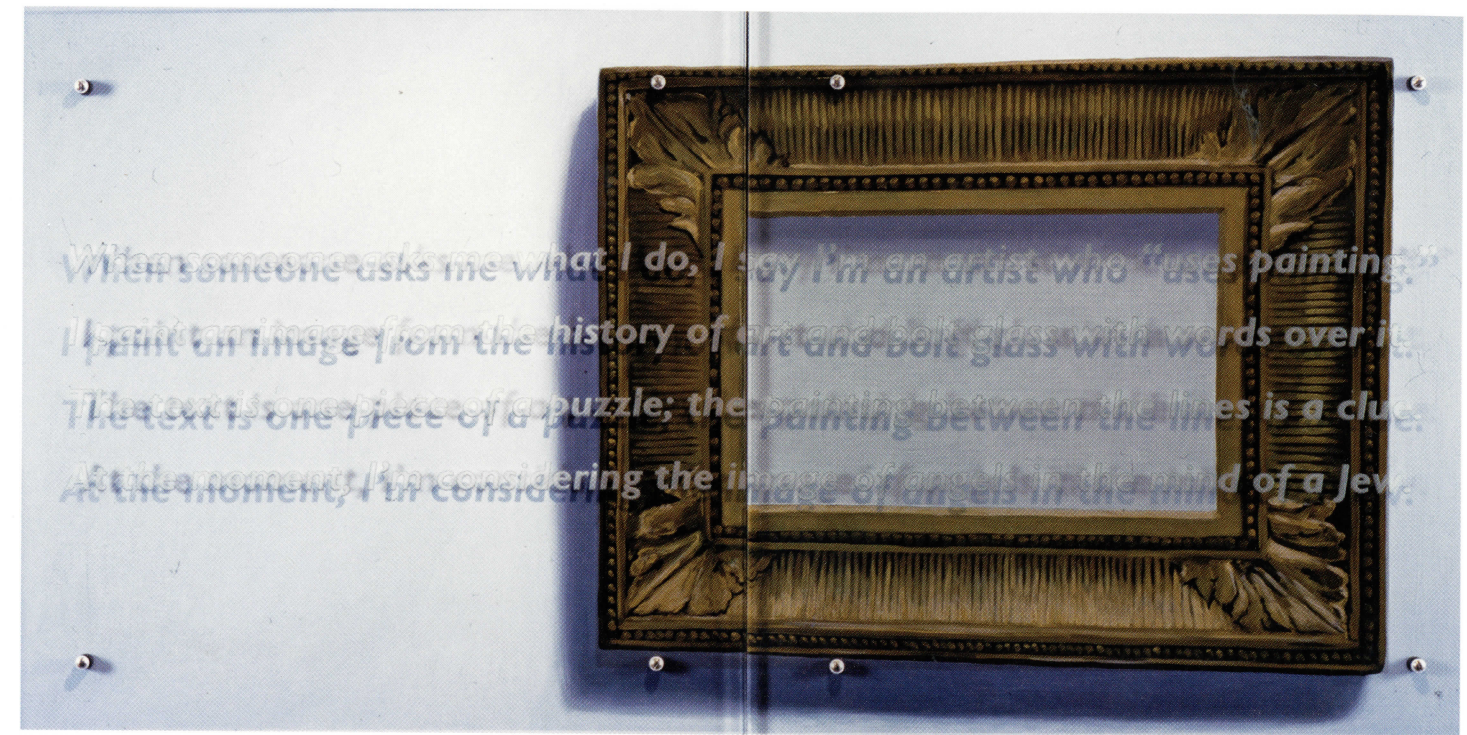 When someone asks me what I do, I say I'm an artist who "uses painting."
I paint an image from the history of art and bolt glass with words over it.
The text is one piece of a puzzle; the painting between the lines is a clue.
At the moment, I'm considering the image of angels in the mind of a Jew.